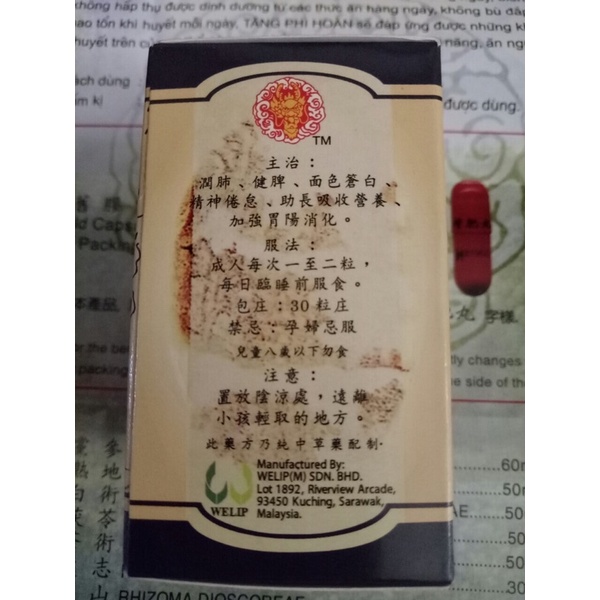 không hấp thụ được dinh dưỡng từ các thức ăn hàng ngày, không bù đắ
hao tổn khí huyết mỗi ngày, TĂNG PHÌ HOÀN sẽ đáp ứng được những kh
huyết trên c
năng, ăn ng
ách dùng
được dùng.
TM
主治：
潤肺、健脾、面色蒼白、
精神倦怠、助長吸收營養、
加強胃陽消化。
服法：
成人每次一至二粒，
每日臨睡前服食。
包庄：30粒庄
禁忌：孕婦忌服
兒童八歲以下勿食
注意：
置放陰涼處，遠離
小孩輕取的地方。
此藥方乃純中草藥配制·
Manufactured By:
WELIP(M) SDN. BHD.
Lot 1892, Riverview Arcade,
93450 Kuching, Sarawak,
Malaysia.
WELIP
d Caps
Packin
本產品
丸 字樣
or the be
packing
tly changes
e side of the
參地術苓術志山
60m
50m
AE
50
50
50
30
RHIZOMA DIOSCOREAE